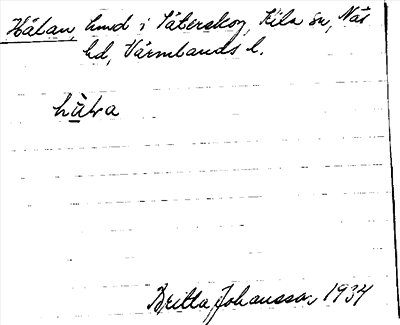 Hålan, hmd i Säterskog, Kila sn, Näs
hd, Värmlands l.
Britta Johansson, 1934